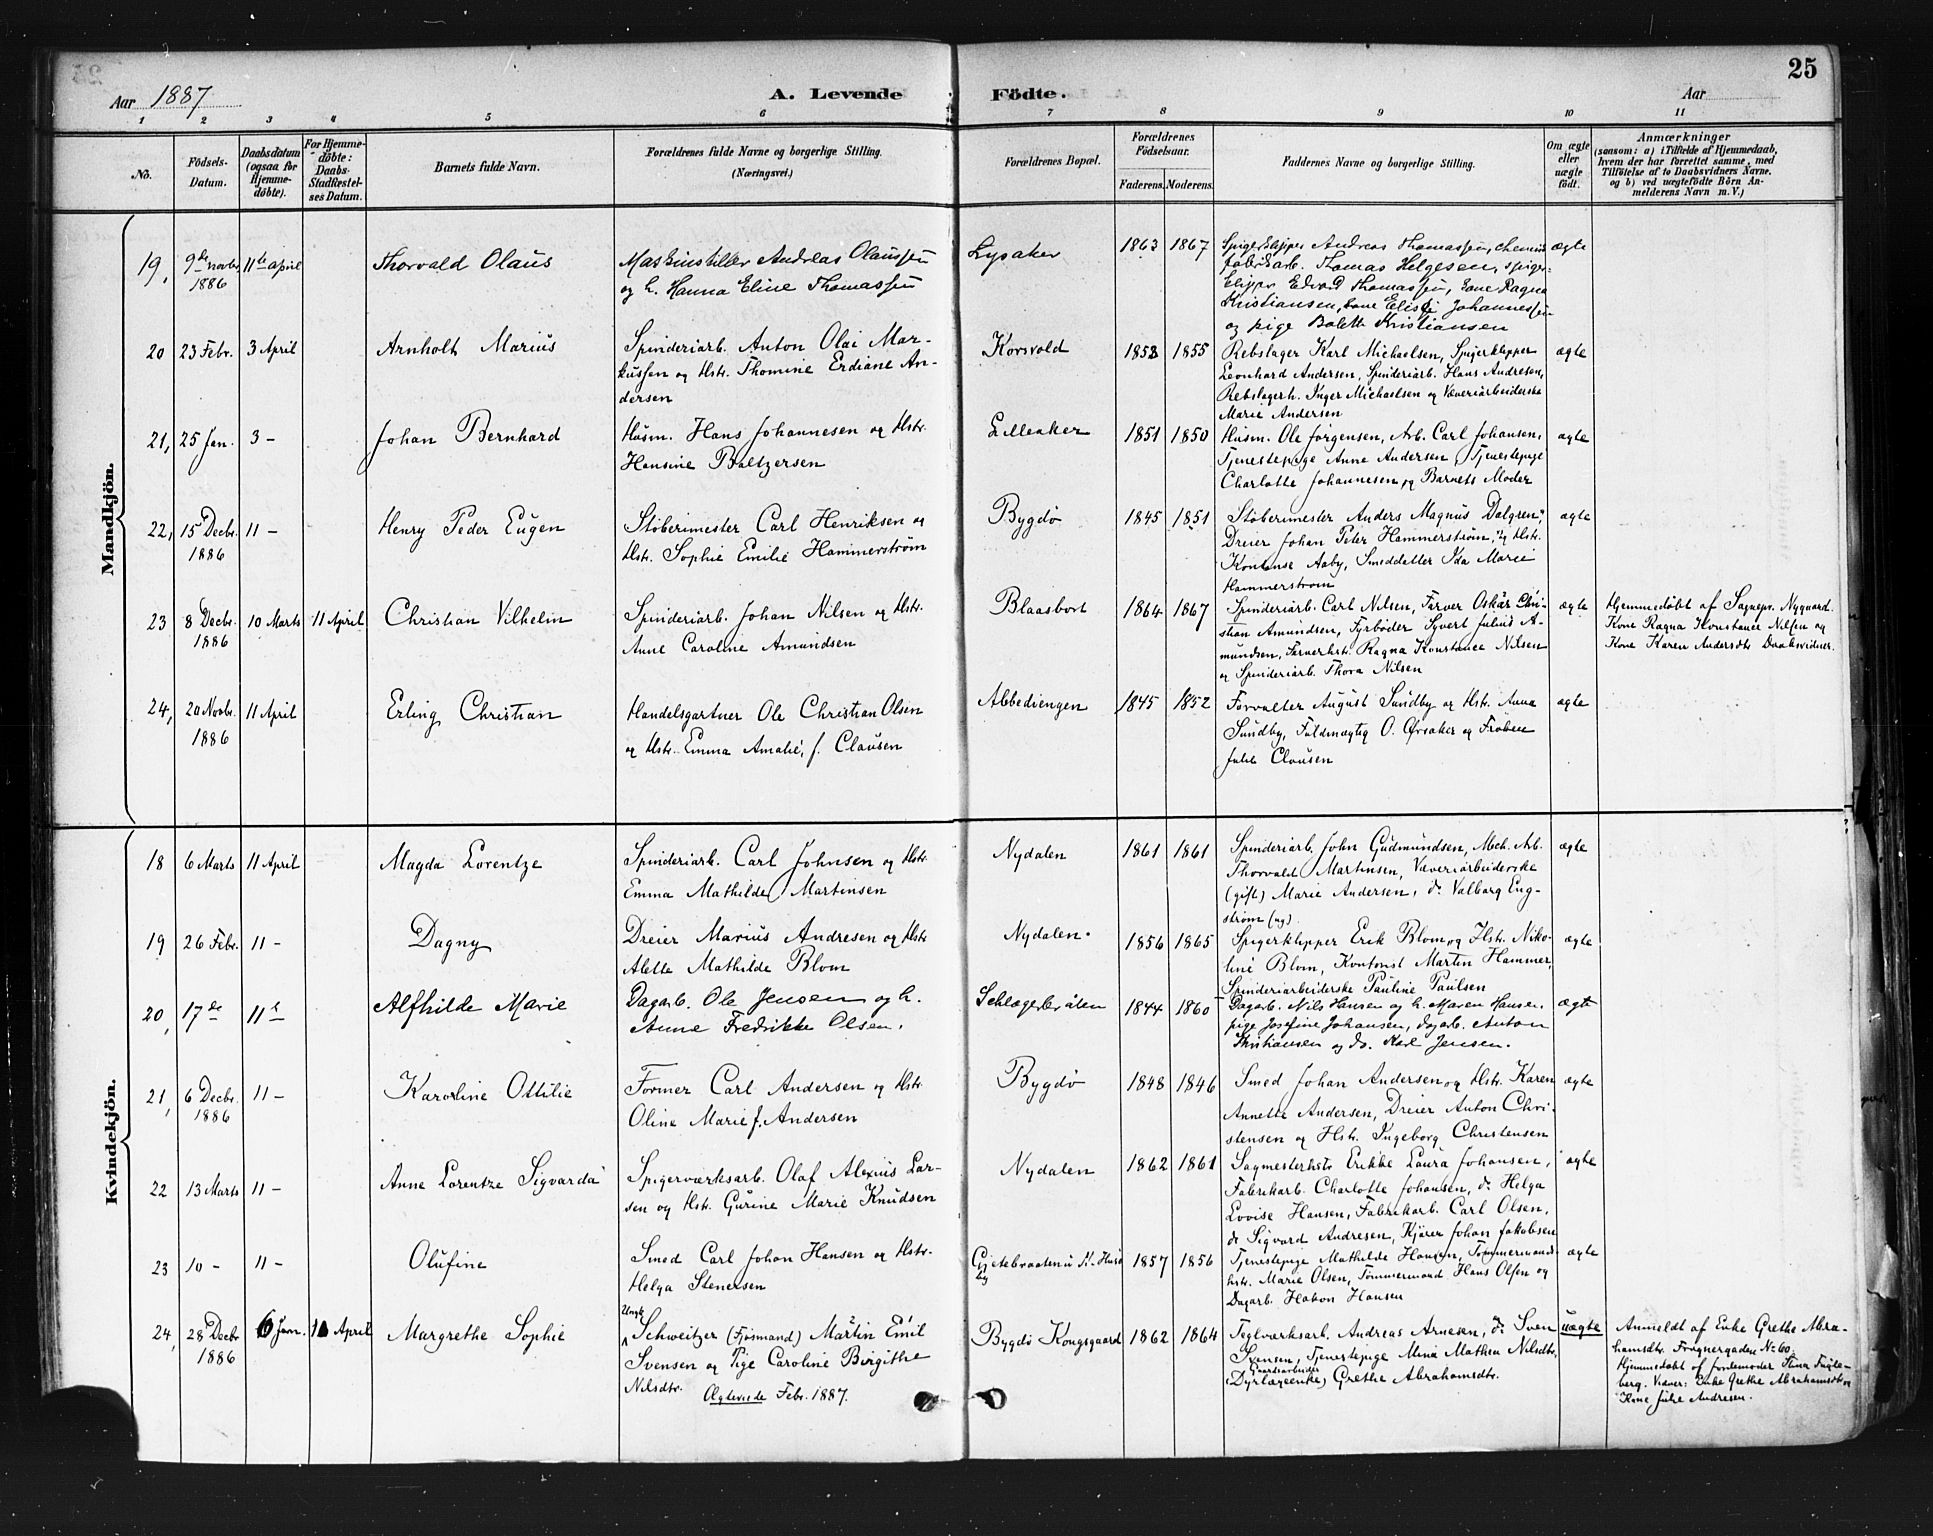 Aar 1887
A. Levende
Födte.
Aar
25
1 2 3 4 5 6 7 8 9 10 11
No.
Födsels-
Datum.
Daabsdatum
(ogsaa for
Hjemme-
døbte).
For Hjemme-
döbte:
Daabs-
Stadfæstel-
ses Datum.
Barnets fulde Navn.
Forældrenes fulde Navne og borgerlige Stilling.
(Næringsvei.)
Forældrenes Bopæl.
Forældrenes
Födselsaar.
Faderens. Moderens.
Faddernes Navne og borgerlige Stilling.
Om ægte
eller
uægte
födt.
Anmærkninger
(saasom: a) i Tilfælde af Hjemmedaab,
hvem der har forrettet samme, med
Tilföielse af to Daabsvidners Navne.
og b) ved uægtefödte Börn An-
melderens Navn m. V.)
Mandkjön.
19, 9de novbr 1886 11te april
Thorvald Olaus
Maskinstiller Andreas Olaussen
og h. Hanna Eline Thomassen
Lysaker
1863 1867
Spigerklipper Andreas Thomassen, chemisk
fabrikarb. Thomas Helgesen, spiger-
klipper Edvard Thomassen, kone Ragna
Kristiansen, kone Elise Johannessen
og pige Bolette Kristiansen
ægte
20 23 Febr. 3 April
Arnholt Marius
Spinderiarb. Anton Olai Mar-
kussen og Hstr. Thomine Erdiane An-
dersen
Korsvold
1853 1855
Rebslager Karl Michaelsen, Spigerklipper
Leonhard Andersen, Spinderiarb. Hans Andresen,
Rebslagerh. Inger Michaelsen og Væveriarbeiderske
Marie Andersen
ægte
21, 25 Jan. 3 -
Johan Bernhard
Husm. Hans Johannesen og Hstr.
Hansine Baltzersen
Lilleaker
1851 1850
Husm. Ole Jørgensen, Arb. Carl Johansen,
Tjenestepige Anne Andersen, Tjenestepige
Charlotte Johannesen og Barnets Moder
ægte
22, 15 Decbr. 1886 11 -
Henry Peder Eugen
Støberimester Carl Henriksen og
Hstr. Sophie Emilie Hammerstrøm
Bygdø
1845 1851
Støberimester Anders Magnus Dalgren,
Dreier Johan Peter Hammerstrøm, og Hstr.
Kontanse Aaby, Smeddatter Ida Marie
Hammerstrøm
ægte
23 8 Decbr. 1886 10 Marts 11 April
Christian Vilhelm
Spinderiarb. Johan Nilsen og Hstr.
Anne Caroline Amundsen
Blaasbort
1864 1867
Spinderiarb. Carl Nilsen, Farver Oskar Chri-
stian Amundsen, Fyrbøder Syvert Julius A-
mundsen, Farverhstr. Ragna Konstance Nilsen
og Spinderiarb. Thora Nilsen
ægte
Hjemmedøbt af Sognepr. Nygaard.
Kone Ragna Konstance Nilsen og
Kone Karen Andersdtr Daabsvidner.
24, 20 Novbr. 1886 11 April
Erling Christian
Handelsgartner Ole Christian Olsen
og Hstr. Emma Amalie, f. Clausen
Abbediengen
1845 1852
Forvalter August Sundby og Hstr. Anna
Sundby, Fuldmægtig O. Øvsaker og Frøken
Julie Clausen
ægte
Kvindekjön.
18 6 Marts 11 April
Magda Lorentze
Spinderiarb. Carl Johnsen og Hstr.
Emma Mathilde Martinsen
Nydalen
1861 1861
Spinderiarb. John Gudmundsen, Mek. Arb.
Thorvald Martinsen, Væveriarbeiderske
(gift) Marie Andersen, do Valborg Eng-
strøm (ug).
ægte
19 26 Febr. 11 -
Dagny
Dreier Marius Andresen og Hstr
Alette Mathilde Blom
Nydalen.
1856 1865
Spigerklipper Erik Blom og Hstr. Niko-
line Blom, Kontorist Martin Hammer,
Spinderiarbeiderske Pauline Paulsen
ægte
20, 17de 11te
Alfhilde Marie
Dagarb. Ole Jensen og h.
Anne Fredrikke Olsen.
Schlægerbråten
1844 1860
Dagarb. Nils Hansen og h. Maren Hansen.
pige Josefine Johansen, dagarb. Anton
Kristiansen og do. Karl Jensen.
ægte
21, 6 Decbr. 1886 11 -
Karoline Ottilie
Former Carl Andersen og Hstr.
Oline Marie f. Andersen
Bygdø
1848 1846
Smed Johan Andersen og Hstr. Karen
Annette Andersen, Dreier Anton Chri-
stensen og Hstr. Ingeborg Christensen
ægte
22 13 Marts 11 -
Anne Lorentze Sigvarda
Spigerværksarb. Olaf Alexius Lar-
sen og Hstr. Gurine Marie Knudsen
Nydalen
1862 1861
Sagmesterhstr Erikke Laura Johansen,
Fabrikarb. Charlotte Johansen, do Helga
Lovise Hansen, Fabrikarb. Carl Olsen,
do Sigvard Andresen, Kjører Johan Jakobsen
ægte
23 10 - 11 -
Olufine
Smed Carl Johan Hansen og Hstr.
Helga Stenersen
1857 1856
Tjenestepige Mathilde Hansen, Tømmermands-
hstr. Marie Olsen, Tømmermand Hans Olsen og
Dagarb. Hakon Hansen
ægte
24, 28 Decbr 1886 6 Jan. 11 April
Margrethe Sophie
Ungk.
Schweitzer (Fjøsmand) Martin Emil
Svensen og Pige Caroline Birgithe
Nilsdtr. Ægteviede Febr. 1887.
Bygdø Kongsgaard
1862 1864
Teglværksarb. Andreas Arnesen, do Sven
Svensen, Tjenestepige Mina Mathea Nilsdtr,
(Dyrlægeenke) Grethe Abrahamsdtr.
uægte
Anmeldt af Enke Grethe Abra-
hamsdtr. Frognergaden No 60.
Hjemmedøbt af Jordemoder Stina Fugle-
berg. Vidner: Enke Grethe Abrahamsdtr og
Kone Julie Andresen.